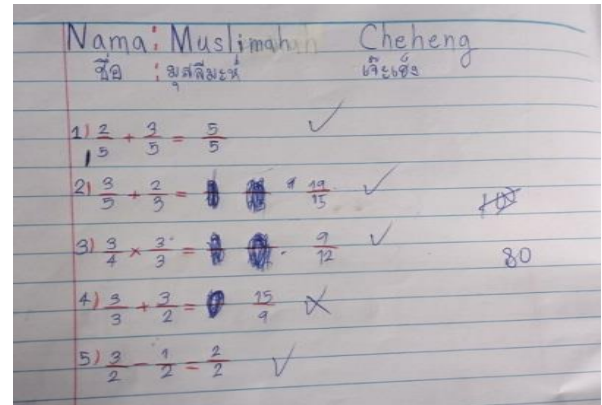 Nama: Muslimah Cheheng
ชื่อ : มุสลีมะห์ เจ๊ะเฮ็ง
1) 2/5 + 3/5 = 5/5 ✓
2) 3/5 + 2/3 = 19/15 ✓
3) 3/4 × 3/3 = 9/12 ✓
80
4) 3/3 + 3/2 = 15/9 ✗
5) 3/2 - 1/2 = 2/2 ✓